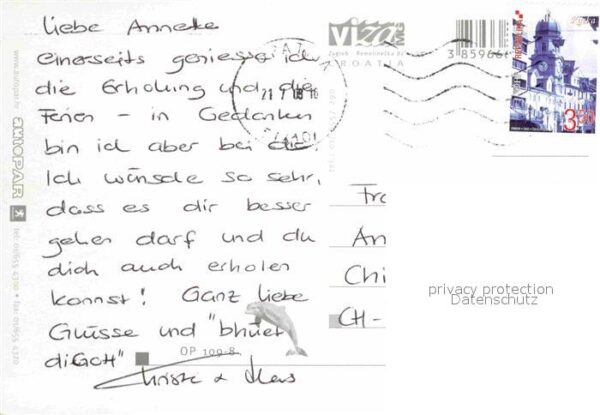 Liebe Anneke
einerseits geniesse ich
die Erholung und die
Ferien - in Gedanken
bin ich aber bei dir.
Ich wünsche so sehr,
dass es dir besser
gehen darf und du
dich auch erholen
kannst! Ganz liebe
Grüsse und "bhüet
diGott"
Christa + 
OP 109-8
VIZA MG
Zagreb - Remetinečka 82
CROATIA
3 859666
21 7
Rijeka
3.50
Fra
An
Chi
CH-
privacy protection
Datenschutz
www.autopar.hr
AUTOPAR
tel: 01/655 4700 • fax: 01/655 4720